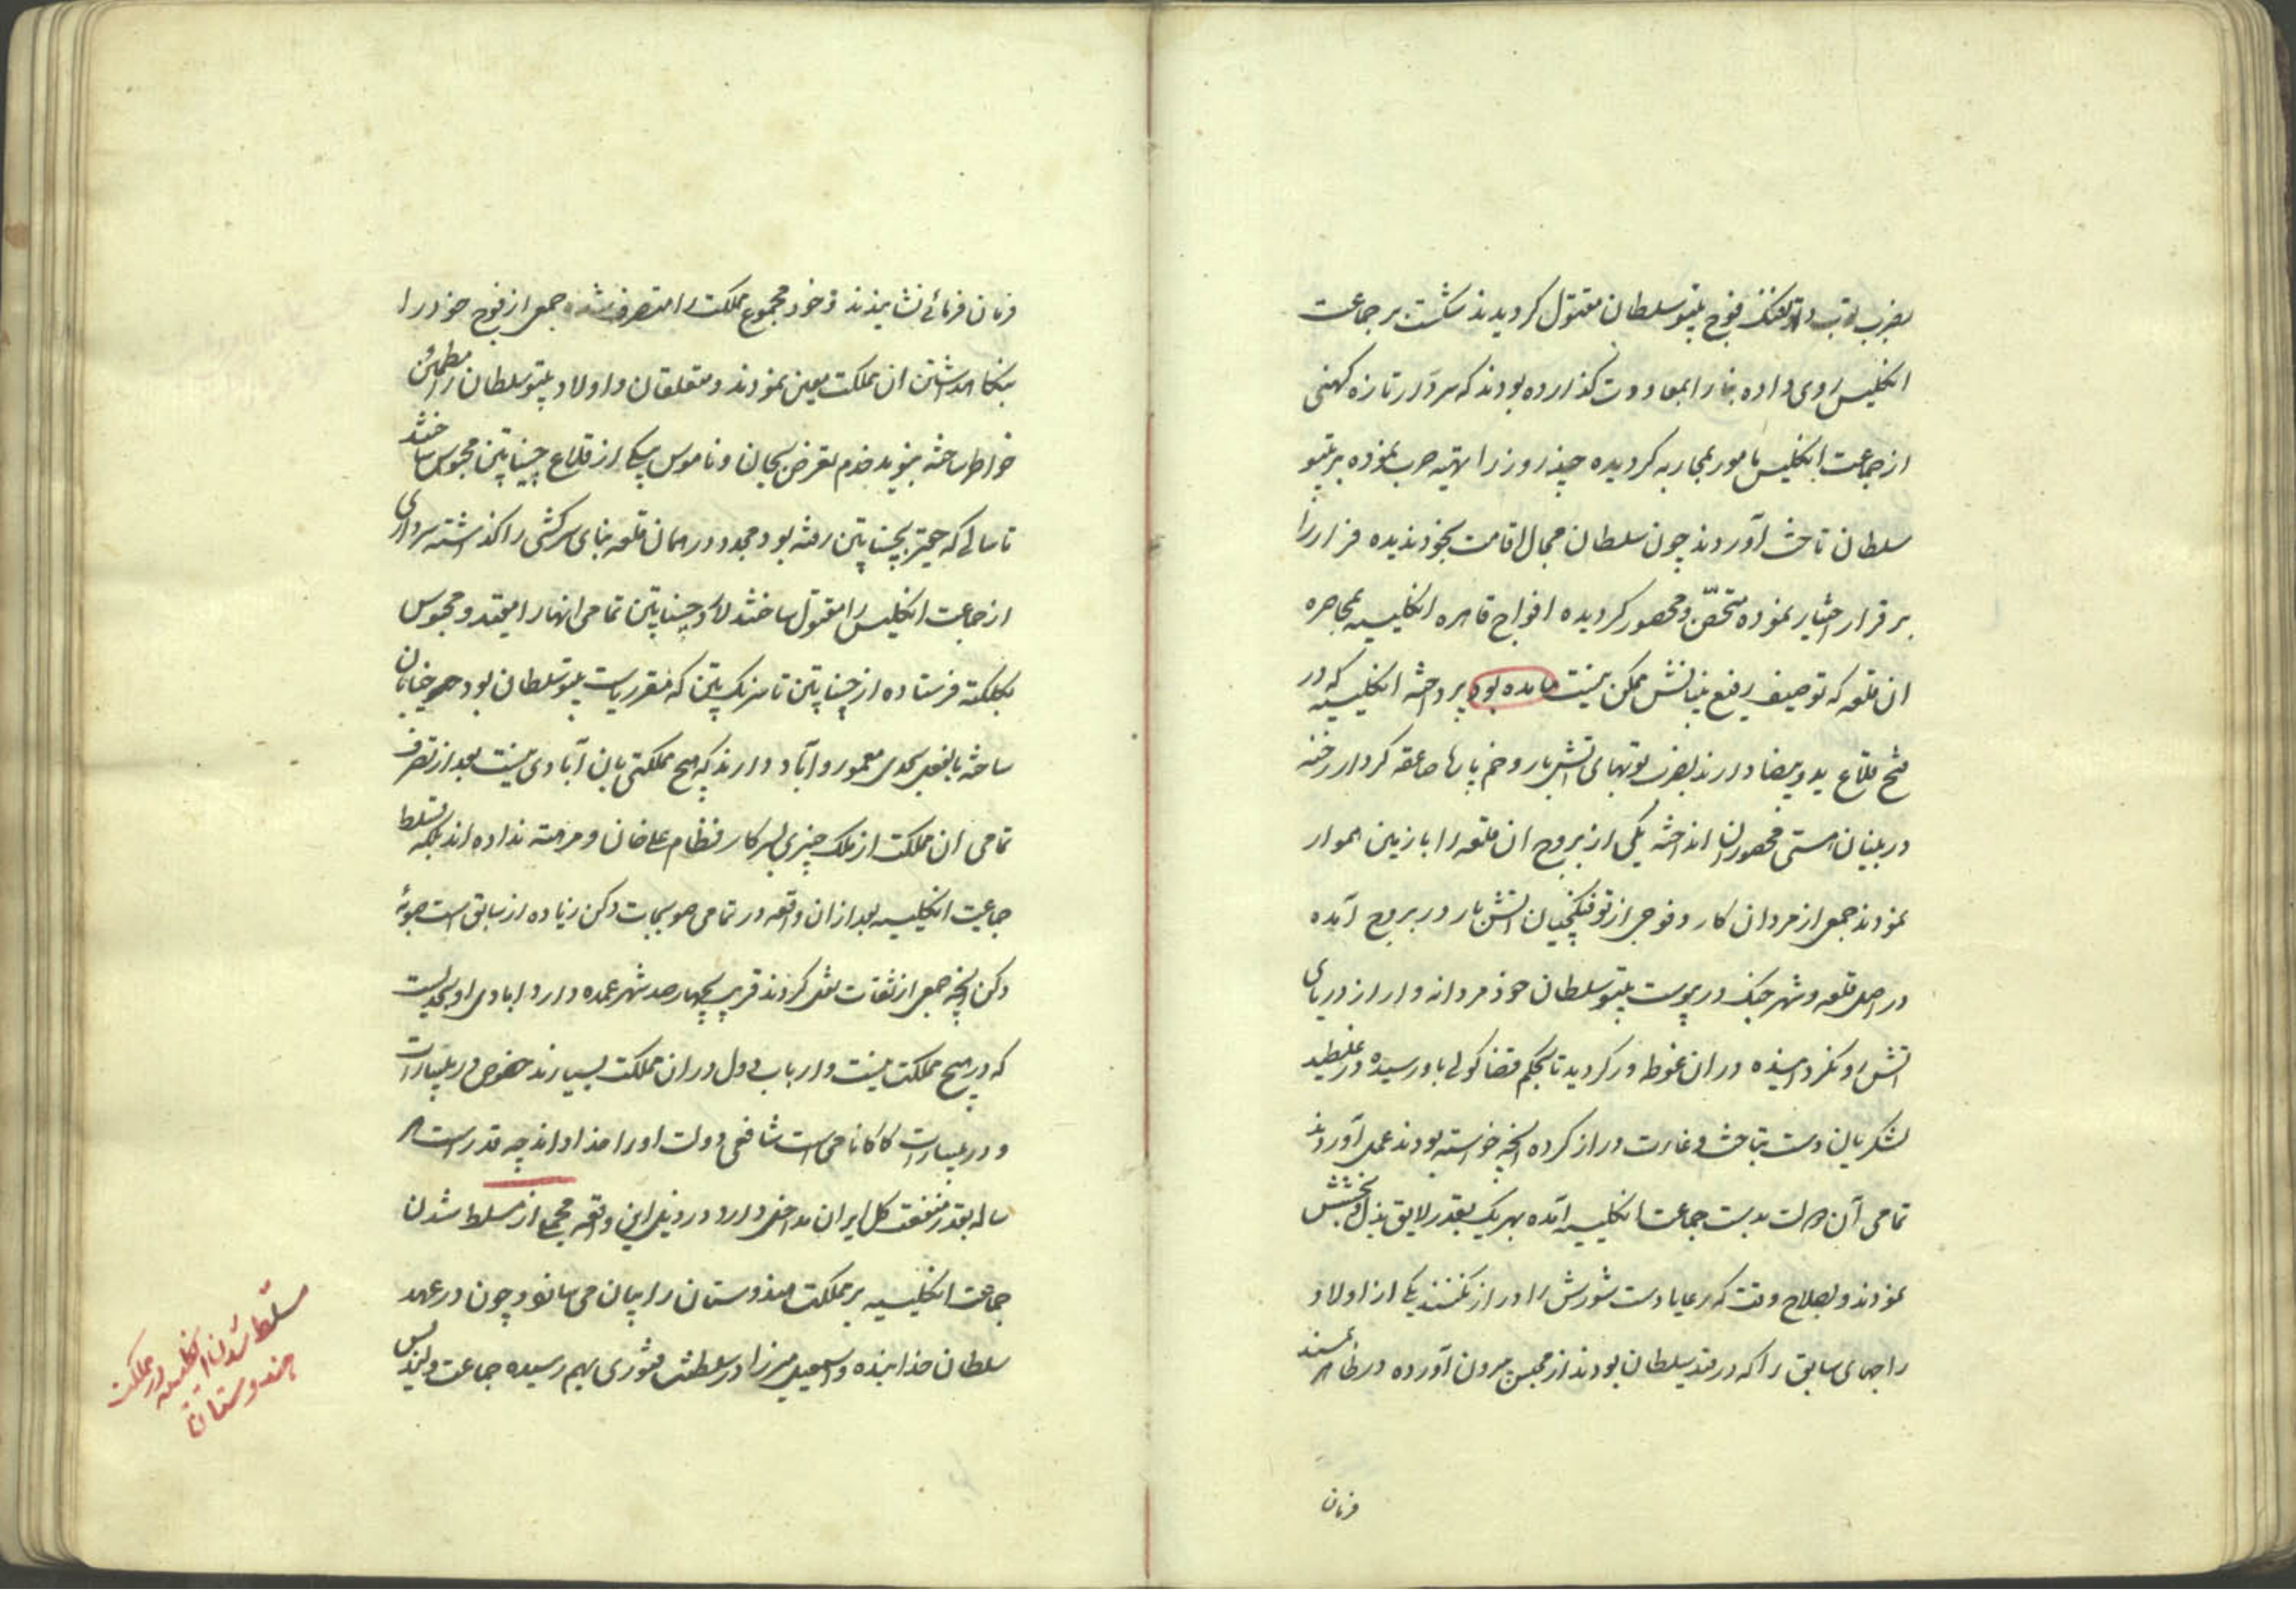 بضرب توپ و تفنگ فوج تیپو سلطان مقتول کردیدند شکست بر جماعت
انکلیس روی داده بنا را بمعاودت کذارده بودند که سردار تازه کهنی
از جماعت انکلیس مامور بمحاربه کردیده چند روز را تهیه حرب نموده بر تیپو
سلطان تاخت آوردند چون سلطان مجال اقامت بخود ندیده فرار را
بر قرار اختیار نموده متحصّن و محصور کردیده افواج قاهره انکلیسیه بمحاصره
ان قلعه که توصیف رفیع بنیانش ممکن نیست مانده بود پرداخته انکلیسیه که در
فتح قلاع ید و بیضا دارند بضرب توپهای اتش بار و خم پارها صاعقه کردار رخنه
در بنیان هستی محصوران انداخته یکی از بروج ان قلعه را با زمین هموار
نمودند جمعی از مردان کار و فوجی از توفنکچیان اتش بار در بروج آمده
در اصل قلعه و شهر جنک در پیوست تیپو سلطان خود مردانه وار از دریای
اتش رو نکردانیده در ان غوطه ور کردید تا بحکم قضا کولی باو رسیده در غلطید
لشکریان دست بتاخت و غارت دراز کرده انچه خواسته بودند بعمل آوردند
تمامی آن دولت بدست جماعت انکلیسیه آمده بهر یک بقدر لایق بذل و بخشش
نمودند و بصلاح وقت که رعایا دست شورش را دراز نکنند یکی از اولاد
راجهای سابق را که در قید سلطان بودند از محبس بیرون آورده در ظاهر بمسند
فرمان
فرمان فرمائی نشانیدند و خود مجموع مملکت را متصرف شده جمعی از فوج خود را
بنکاهداشتن ان مملکت معین نمودند و متعلقان و اولاد تیپو سلطان را مطمئن
خواطر ساخته بنوید عدم تعرض بجان و ناموس بیکی از قلاع چیناپتن محبوس ساختند
تا سالی که حقیر بچیناپتن رفته بود مجددا در همان قلعه بنای سرکشی را کذاشته سرداری
از جماعت انکلیس را مقتول ساختند لارد چیناپتن تمامی انها را مقید و محبوس
بکلکته فرستاده از چیناپتن تا سرنک پتن که مقر ریاست تیپو سلطان بود همه خیابان
ساخته بالفعل بحدی معمور و آباد دارند که هیچ مملکتی بان آبادی نیست بعد از تصرف
تمامی ان مملکت از ملک چیزی بسرکار نظام علیخان و مرهته نداده اند بلکه تسلط
جماعت انکلیسیه بعد از ان واقعه در تمامی صوبجات دکن زیاده از سابق است صوبهٔ
دکن انچه جمعی از ثقات نقل کردند قریب بچهار صد شهر عمده دارد ابادی او بحدیست
که در هیچ مملکت نیست و ارباب دول در ان مملکت بسیارند خصوص در ملیبارات
و در ملیبارات کاکا نامی است شافعی دولت او را خدا داند چه قدر است هر
ساله بقدر منفعت کل ایران مداخل دارد در ذیل این واقعه مجملی از مسلط شدن
جماعت انکلیسیه بر مملکت هندوستان را بیان می نماید و چون در عهد
سلطان خدابنده و اسمعیل میرزا در سلطنت فتوری بهم رسیده جماعت ولندیس
مسلّط شدن انکلیسیه در مملکت
هندوستان